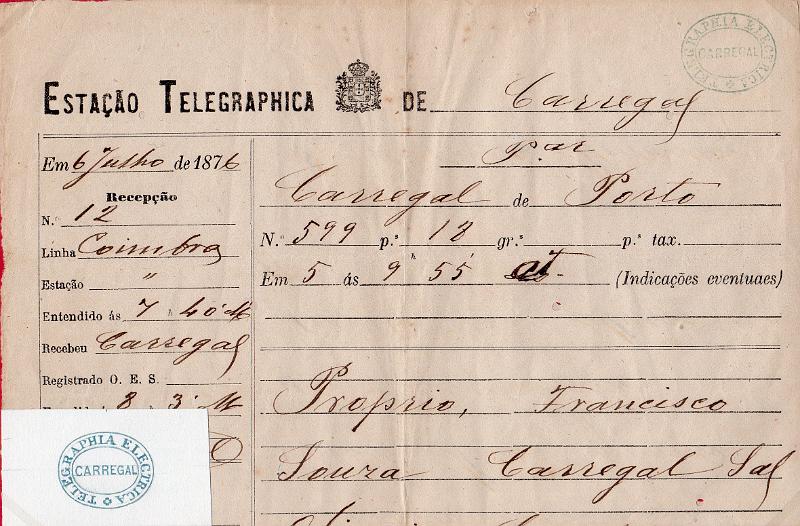 TELEGRAPHIA ELECTRICA
CARREGAL
ESTAÇÃO TELEGRAPHICA DE Carregal
Em 6 Julho de 1876
Recepção
N.º 12
Linha Coimbra
Estação "
Entendido ás 7 h 40' M
Recebeu Carregal
Registrado O. E. S.
8 3' M
Par
Carregal de Porto
N.º 599 p.ª 18 gr.ª p.ª tax.
Em 5 ás 9 h 55' (Indicações eventuaes)
Proprio, Francisco
Souza Carregal Sal
TELEGRAPHIA ELECTRICA
CARREGAL